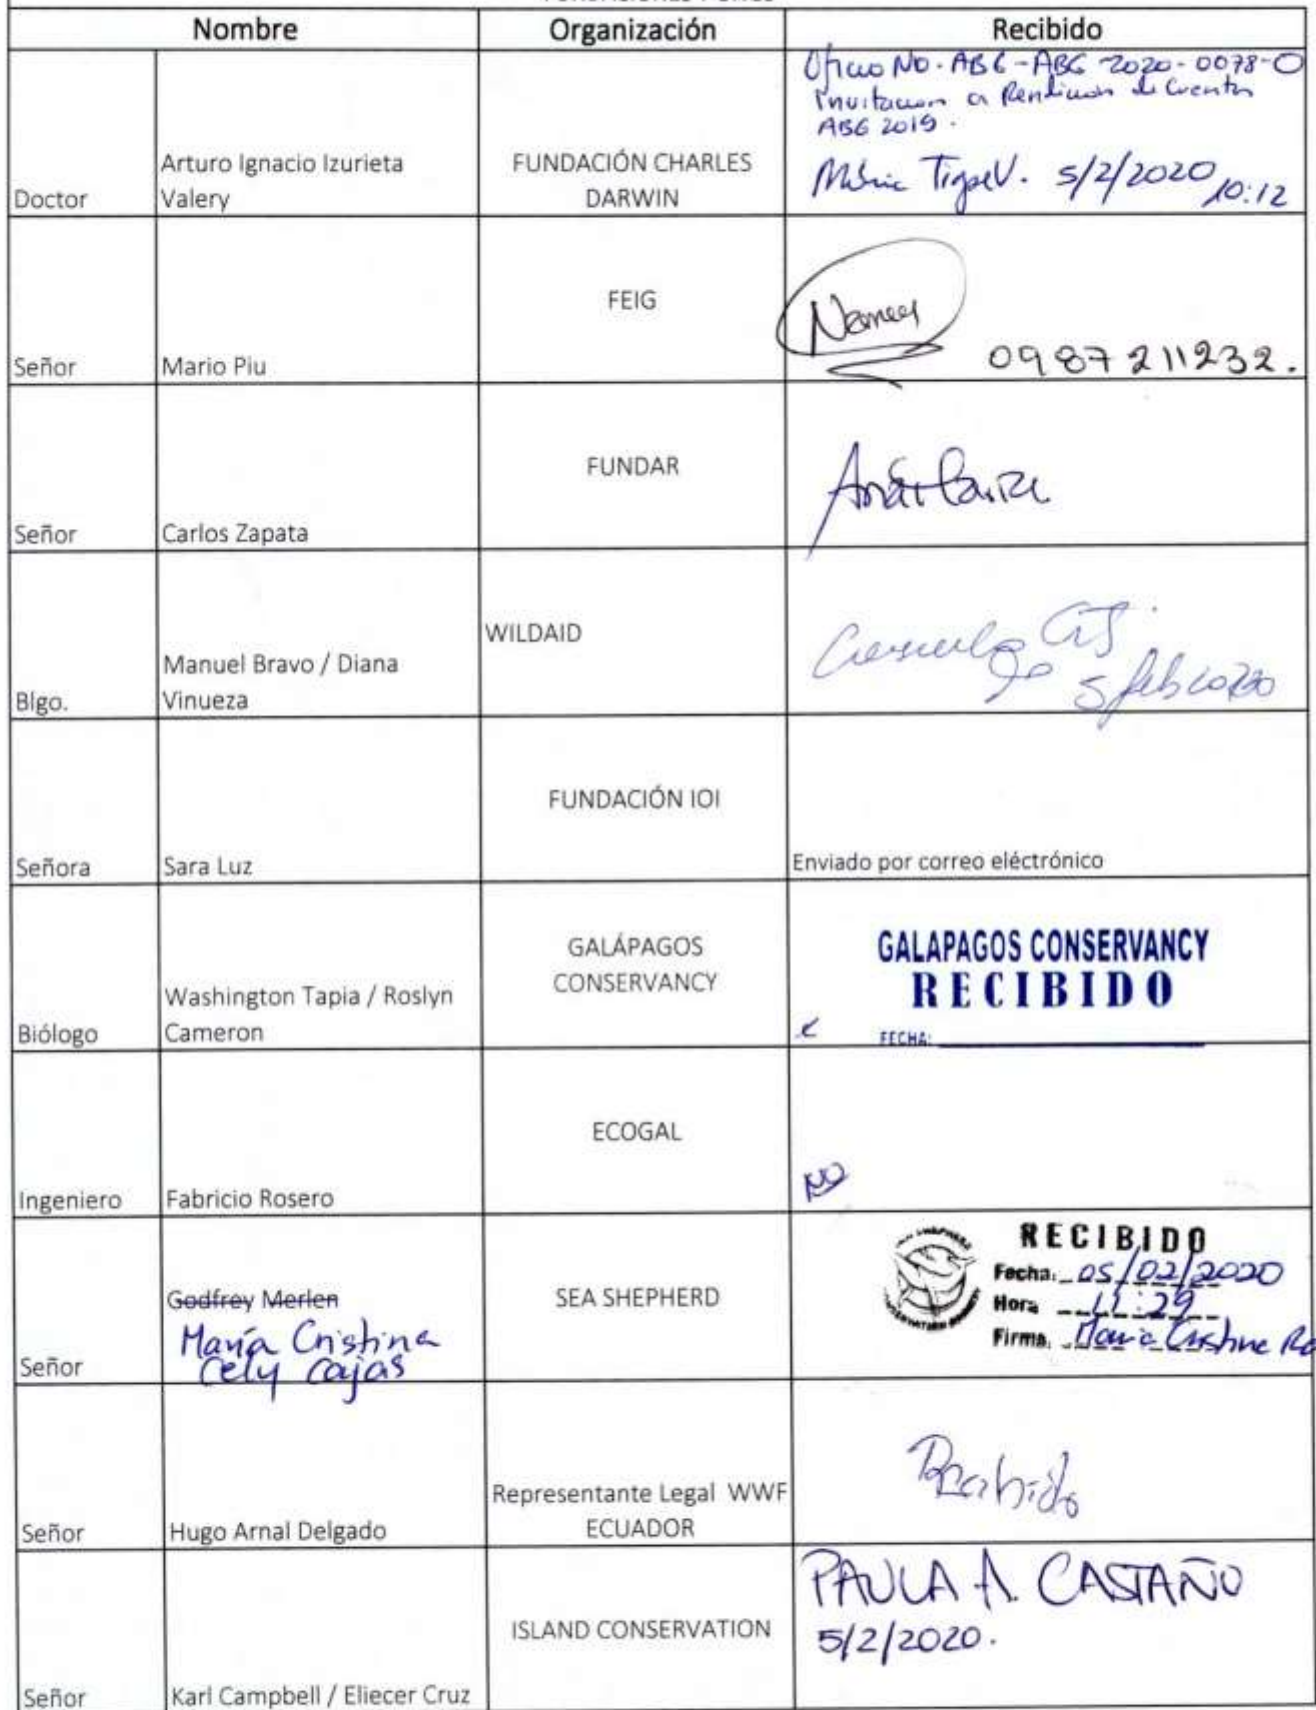 Nombre Organización Recibido
Oficio No. ABG-ABG-2020-0078-O
Invitacion a Rendicion de Cuentas
ABG 2019.
Doctor Arturo Ignacio Izurieta
Valery
FUNDACIÓN CHARLES
DARWIN
5/2/2020 10:12
Señor Mario Piu
FEIG
0987211232.
Señor Carlos Zapata
FUNDAR
Blgo. Manuel Bravo / Diana
Vinueza
WILDAID
5 feb 2020
Señora Sara Luz
FUNDACIÓN IOI
Enviado por correo eléctrónico
Biólogo Washington Tapia / Roslyn
Cameron
GALÁPAGOS
CONSERVANCY
GALAPAGOS CONSERVANCY
RECIBIDO
FECHA:
Ingeniero Fabricio Rosero
ECOGAL
NO
Señor Godfrey Merlen
María Cristina
Cely Cajas
SEA SHEPHERD
RECIBIDO
Fecha: 05/02/2020
Hora 11:29
Firma. Maria Cristina Ro
Señor Hugo Arnal Delgado
Representante Legal WWF
ECUADOR
Recibido
Señor Karl Campbell / Eliecer Cruz
ISLAND CONSERVATION
PAULA A. CASTAÑO
5/2/2020.